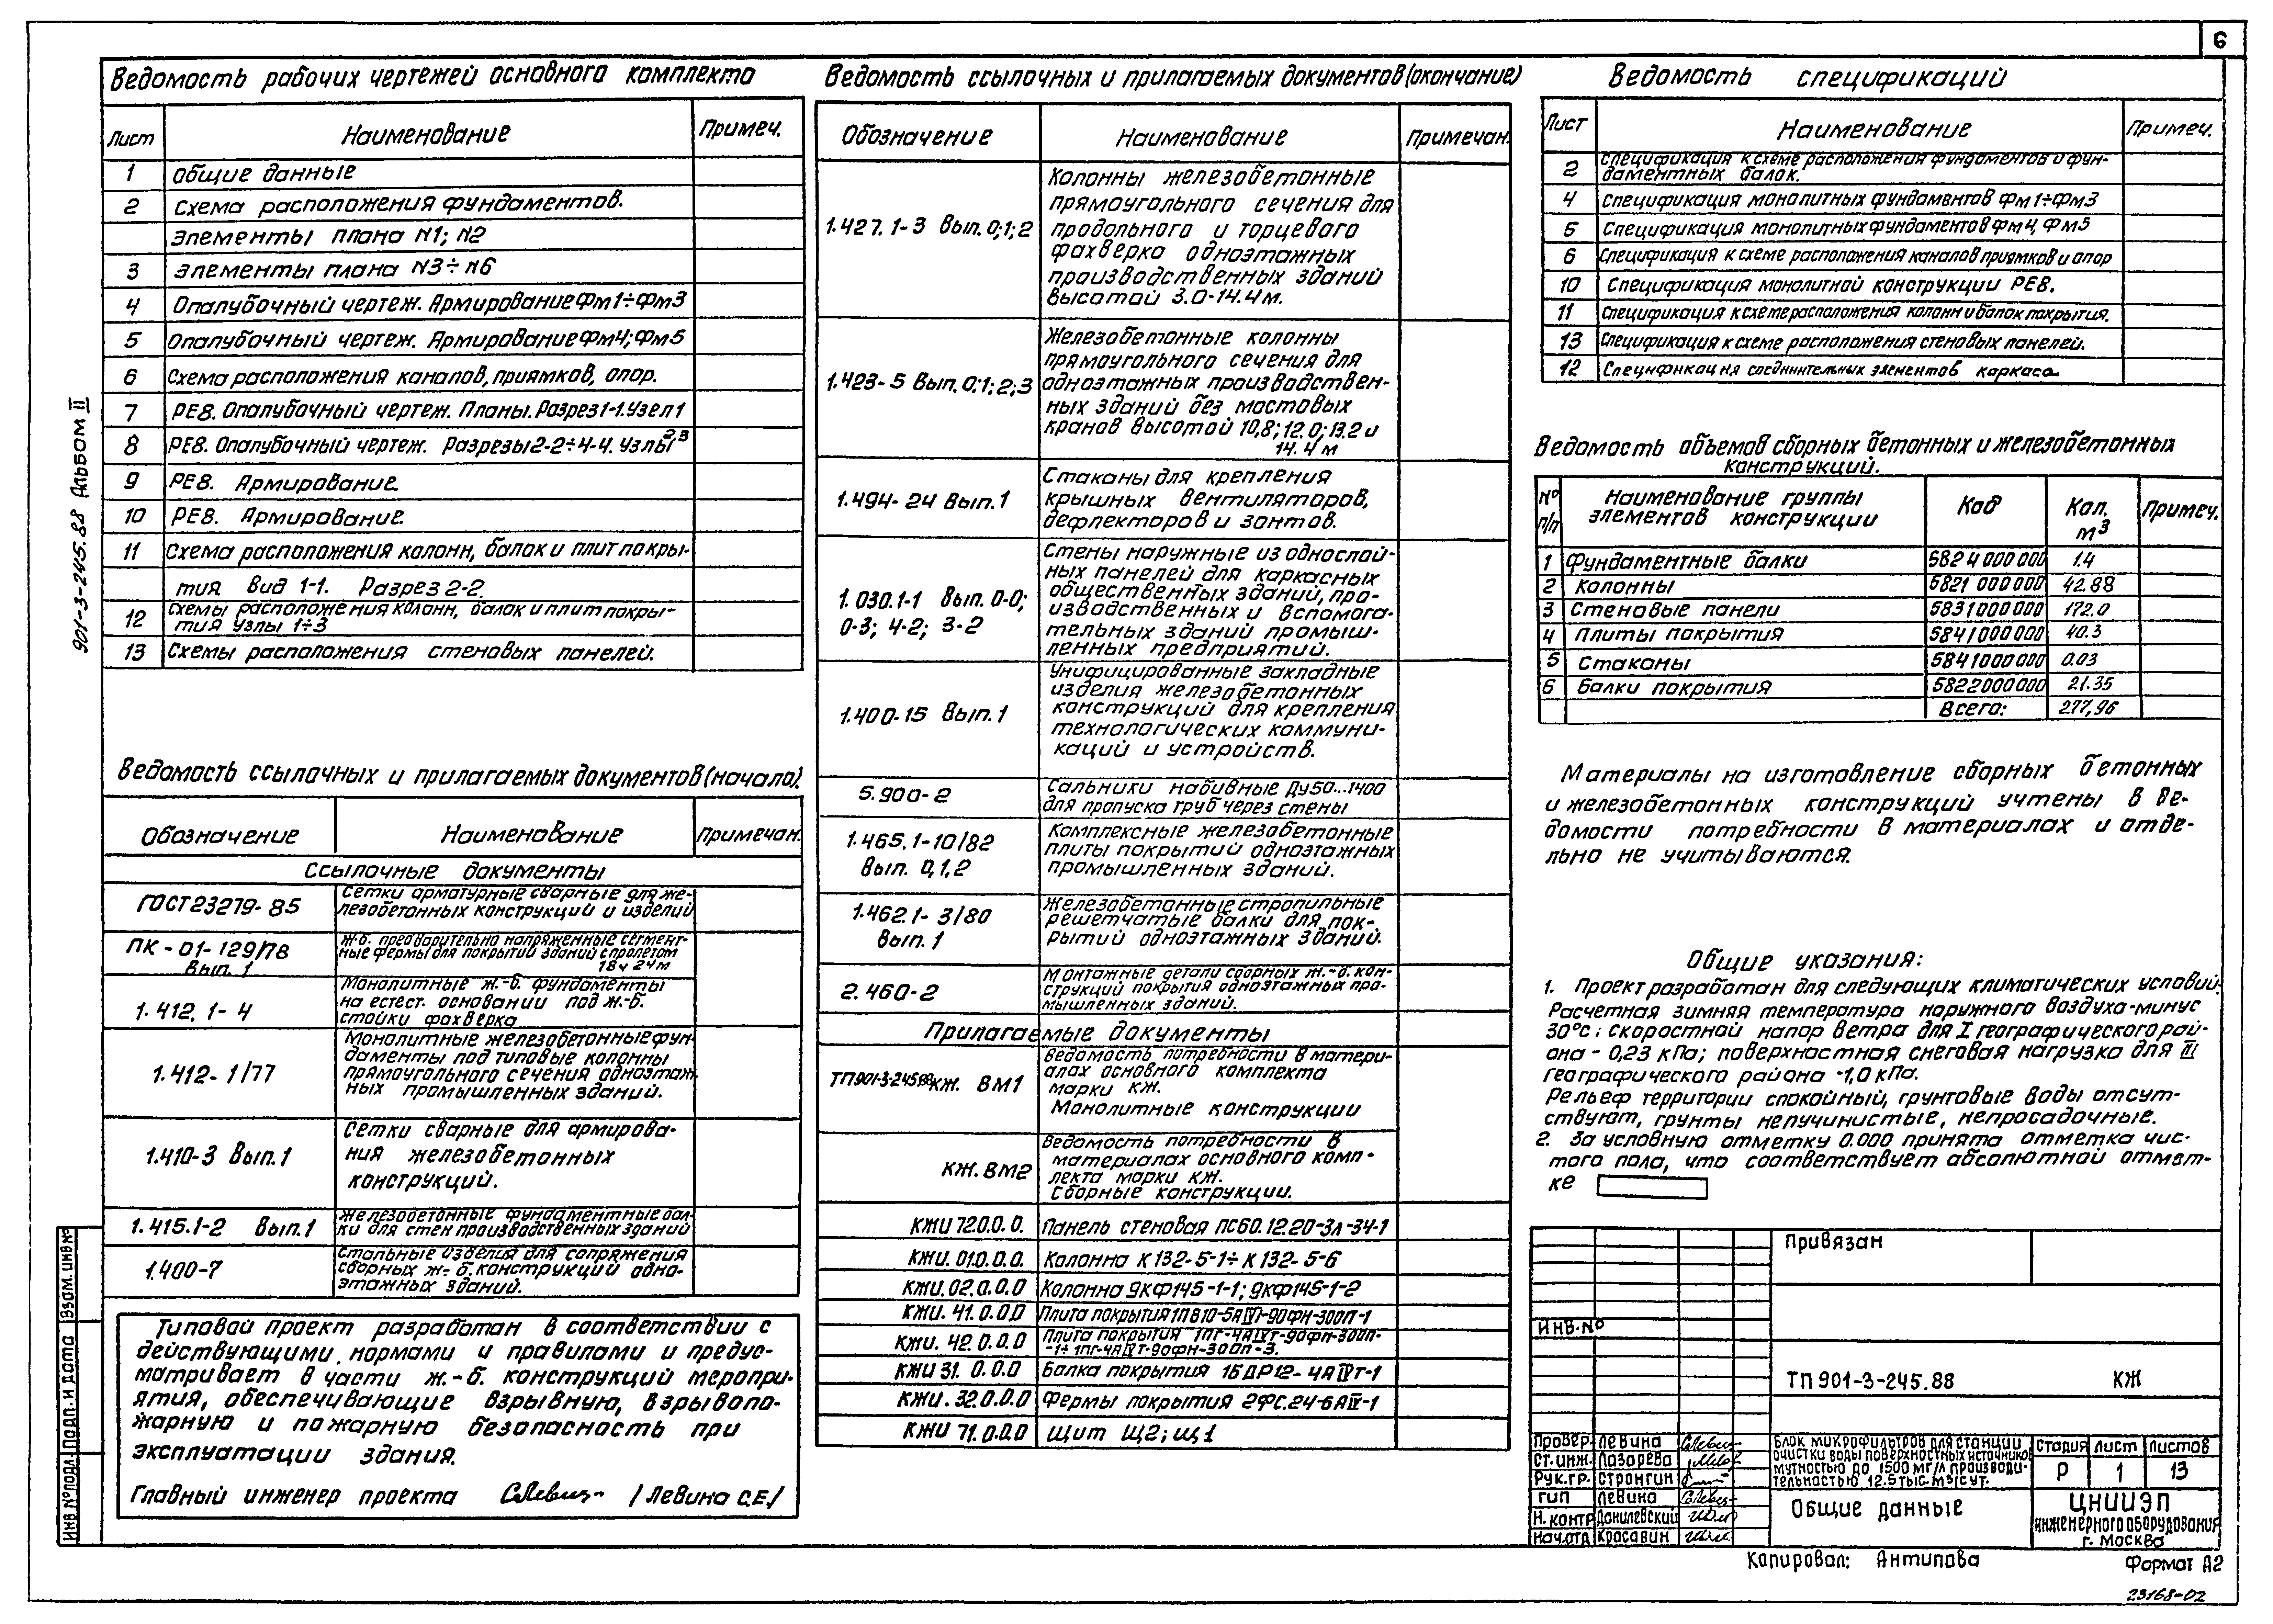 6
Ведомость рабочих чертежей основного комплекта
Лист Наименование Примеч.
1 Общие данные
2 Схема расположения фундаментов.
Элементы плана N1; N2
3 Элементы плана N3÷N6
4 Опалубочный чертеж. Армирование Фм1÷Фм3
5 Опалубочный чертеж. Армирование Фм4; Фм5
6 Схема расположения каналов, приямков, опор.
7 РЕ8. Опалубочный чертеж. Планы. Разрез 1-1. Узел 1
8 РЕ8. Опалубочный чертеж. Разрезы 2-2÷4-4. Узлы 2,3
9 РЕ8. Армирование.
10 РЕ8. Армирование.
11 Схема расположения колонн, балок и плит покры-
тия Вид 1-1. Разрез 2-2.
12 Схемы расположения колонн, балок и плит покры-
тия Узлы 1÷3
13 Схемы расположения стеновых панелей.
901-3-245.88 Альбом II
Ведомость ссылочных и прилагаемых документов (начало).
Обозначение Наименование Примечан.
Ссылочные документы
ГОСТ 23279-85 Сетки арматурные сварные для же-
лезобетонных конструкций и изделий
ПК-01-129/78 Вып. 1 Ж-б. предварительно напряженные сегмент-
ные фермы для покрытий зданий с пролетом
18 и 24м
1.412.1-4 Монолитные ж.-б. фундаменты
на естест. основании под ж.-б.
стойки фахверка
1.412-1/77 Монолитные железобетонные фун-
даменты под типовые колонны
прямоугольного сечения одноэтаж-
ных промышленных зданий.
1.410-3 Вып.1 Сетки сварные для армирова-
ния железобетонных
конструкций.
1.415.1-2 Вып.1 Железобетонные фундаментные бал-
ки для стен производственных зданий
1.400-7 Стальные изделия для сопряжения
сборных ж.-б. конструкций одно-
этажных зданий.
Типовой проект разработан в соответствии с
действующими нормами и правилами и предус-
матривает в части ж.-б. конструкций меропри-
ятия, обеспечивающие взрывную, взрывопо-
жарную и пожарную безопасность при
эксплуатации здания.
Главный инженер проекта /Левина С.Е./
Инв № подл Подп. и дата Взам. инв №
Ведомость ссылочных и прилагаемых документов (окончание)
Обозначение Наименование Примечан.
1.427.1-3 Вып. 0;1;2 Колонны железобетонные
прямоугольного сечения для
продольного и торцевого
фахверка одноэтажных
производственных зданий
высотой 3.0-14.4 м.
1.423-5 Вып. 0;1;2;3 Железобетонные колонны
прямоугольного сечения для
одноэтажных производствен-
ных зданий без мостовых
кранов высотой 10,8; 12.0; 13.2 и
14.4 м
1.494-24 Вып.1 Стаканы для крепления
крышных вентиляторов,
дефлекторов и зонтов.
1.030.1-1 Вып. 0-0;
0-3; 4-2; 3-2 Стены наружные из однослой-
ных панелей для каркасных
общественных зданий, про-
изводственных и вспомога-
тельных зданий промыш-
ленных предприятий.
1.400-15 Вып.1 Унифицированные закладные
изделия железобетонных
конструкций для крепления
технологических коммуни-
каций и устройств.
5.900-2 Сальники набивные Ду50...1400
для пропуска труб через стены
1.465.1-10/82
Вып. 0,1,2 Комплексные железобетонные
плиты покрытий одноэтажных
промышленных зданий.
1.462.1-3/80
Вып. 1 Железобетонные стропильные
решетчатые балки для пок-
рытий одноэтажных зданий.
2.460-2 Монтажные детали сборных ж.-б. кон-
струкций покрытия одноэтажных про-
мышленных зданий.
Прилагаемые документы
ТП 901-3-245.88 КЖ. ВМ1 Ведомость потребности в матери-
алах основного комплекта
марки КЖ.
Монолитные конструкции
КЖ. ВМ2 Ведомость потребности в
материалах основного комп-
лекта марки КЖ.
Сборные конструкции.
КЖИ 72.0.0.0. Панель стеновая ПС60.12.20-3л-34-1
КЖИ. 01.0.0.0. Колонна К 132-5-1÷ К 132-5-6
КЖИ. 02.0.0.0 Колонна 9КФ145-1-1; 9КФ145-1-2
КЖИ. 41.0.0.0 Плита покрытия 1ПВ10-5АIVт-90ФН-300П-1
КЖИ. 42.0.0.0 Плита покрытия 1ПГ-4АIVт-90ФН-300П-
-1÷ 1ПГ-4АIVт-90ФН-300П-3.
КЖИ 31. 0.0.0 Балка покрытия 1БДР12-4АIVт-1
КЖИ. 32.0.0.0 Фермы покрытия 2ФС.24-6АIV-1
КЖИ 71.0.0.0 Щит Щ2; Щ1
Ведомость спецификаций
Лист Наименование Примеч.
2 Спецификация к схеме расположения фундаментов и фун-
даментных балок.
4 Спецификация монолитных фундаментов Фм1÷Фм3
5 Спецификация монолитных фундаментов Фм4, Фм5
6 Спецификация к схеме расположения каналов приямков и опор
10 Спецификация монолитной конструкции РЕ8.
11 Спецификация к схеме расположения колонн и балок покрытия.
13 Спецификация к схеме расположения стеновых панелей.
12 Спецификация соединительных элементов каркаса.
Ведомость объемов сборных бетонных и железобетонных
конструкций.
№ п/п Наименование группы
элементов конструкции Код Кол. м3 Примеч.
1 Фундаментные балки 5824000000 1.4
2 Колонны 5821000000 42.88
3 Стеновые панели 5831000000 172.0
4 Плиты покрытия 5841000000 40.3
5 Стаканы 5841000000 0.03
6 Балки покрытия 5822000000 21.35
Всего: 277,96
Материалы на изготовление сборных бетонных
и железобетонных конструкций учтены в Ве-
домости потребности в материалах и отде-
льно не учитываются.
Общие указания:
1. Проект разработан для следующих климатических условий.
Расчетная зимняя температура наружного воздуха-минус
30°С; скоростной напор ветра для I географического рай-
она - 0,23 кПа; поверхностная снеговая нагрузка для III
географического района -1,0 кПа.
Рельеф территории спокойный, грунтовые воды отсут-
ствуют, грунты непучинистые, непросадочные.
2. За условную отметку 0.000 принята отметка чис-
того пола, что соответствует абсолютной отмет-
ке
Привязан
Инв.№
ТП 901-3-245.88 КЖ
Провер. Левина
Ст. инж. Лазарева
Рук. гр. Стронгин
ГИП Левина
Н. контр Данилевский
Нач. отд Красавин
Блок микрофильтров для станции
очистки воды поверхностных источников
мутностью до 1500 мг/л производи-
тельностью 12.5 тыс. м3/сут.
Стадия Лист Листов
Р 1 13
Общие данные
ЦНИИЭП
инженерного оборудования
г. Москва
Копировал: Антипова
Формат А2
23168-02